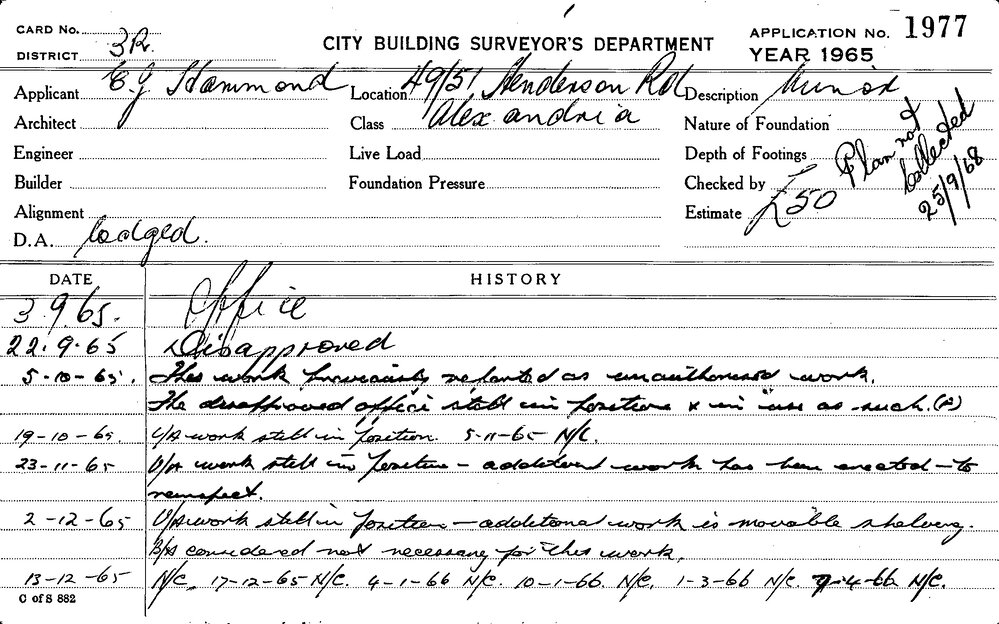 CARD No.
DISTRICT 3R.
CITY BUILDING SURVEYOR'S DEPARTMENT
APPLICATION No. 1977
YEAR 1965
Applicant E.J. Hammond
Location 49/51 Henderson Rd
Alexandria
Description Minor
Architect
Class
Nature of Foundation
Engineer
Live Load
Depth of Footings
Builder
Foundation Pressure
Checked by
Alignment
Estimate £50
D.A. lodged.
Plan not
collected
25/9/68
DATE HISTORY
3.9.65. Office
22.9.65 Disapproved
5-10-65. This work previously reported as unauthorised work.
The disapproved office still in position & in use as such. (A)
19-10-65. U/A work still in position. 5-11-65 N/C.
23-11-65 U/A work still in position - additional work has been erected - to
reinspect.
2-12-65 U/A work still in position - additional work is movable shelving.
B/A considered not necessary for this work.
13-12-65 N/C. 17-12-65 N/C. 4-1-66 N/C. 10-1-66. N/C. 1-3-66 N/C. 7-4-66 N/C.
C of S 882